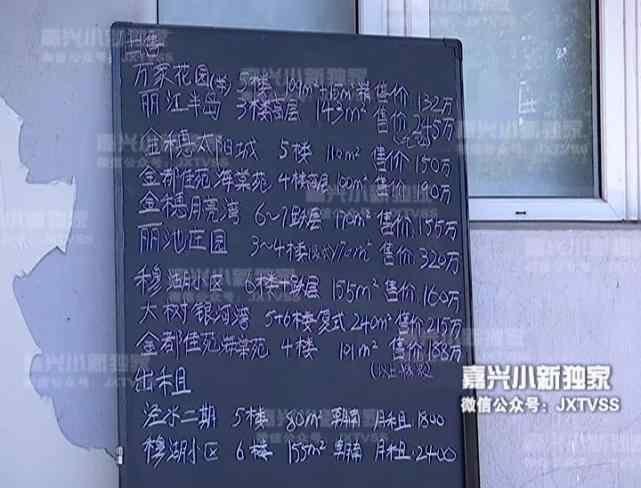 出售
万家花园(学) 5楼 109m²+15m²精 售价 132万
丽江半岛 3楼高层 143m² 售价 245万
金穗太阳城 5楼 110m² 售价 150万
金都佳苑海棠苑 4楼高层 190m² 售价 190万
金穗月亮湾 6~7跃层 170m² 售价 155万
丽池庄园 3~4楼 170m² 售价 320万
穆湖小区 6楼+跃层 155m² 售价 160万
大树银河湾 5+6楼复式 240m² 售价 215万
金都佳苑海棠苑 4楼 191m² 售价 188万
出租
泾水二期 5楼 80m² 朝南 月租:1800
穆湖小区 6楼 155m² 朝南 月租:2400
嘉兴小新独家
微信公众号：JXTVSS